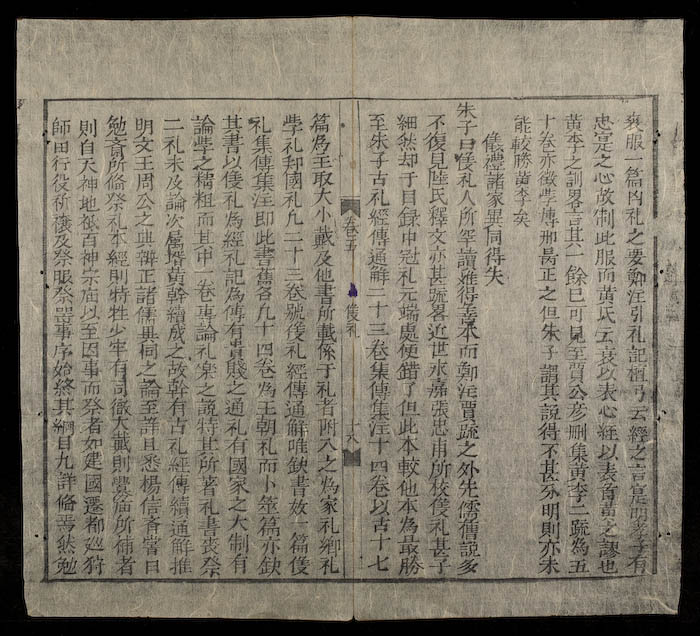 喪服一篇凶礼之要鄭注引礼記檀弓云絰之言實明孝子有
忠實之心故制此服而黃氏云衰以表心絰以表首黃之謬也
黃李之訓畧言其一餘巳可見至賈公彥刪集黃李二疏為五
十卷亦徵學博邢昺正之但朱子謂其說得不甚分明則亦未
能較勝黃李矣
儀禮諸家異同得失
朱子曰儀礼人所罕讀難得善本而鄭注賈疏之外先儒舊說多
不復見陸氏釋文亦甚疏畧近世永嘉張忠甫所校儀礼甚子
細然却于目录中冠礼元端處便錯了但此本較他本為最勝
至朱子古礼經傳通解二十三卷集傳集注十四卷以古十七
卷五
儀礼
十八
篇為主取大小戴及他書所載係于礼者附入之為家礼鄉礼
學礼邦國礼凡二十三卷號儀礼經傳通解唯缺書数一篇儀
礼集傳集注即此書舊名凡十四卷為王朝礼而卜筮篇亦缺
其書以儀礼為經礼記為傳有貴賤之通礼有國家之大制有
論學之精粗而其中一卷專論礼楽之說特其所著礼書喪祭
二礼未及論次属壻黃幹續成之故幹有古礼經傳續通解推
明文王周公之典辯正諸儒異同之論至詳且悉楊信斎嘗曰
勉斎所脩祭礼本經則特牲少牢有司徹大戴則釁廟所補者
則自天神地祗百神宗庙以至因事而祭者如建國遷都巡狩
師田行役祈禳及祭服祭噐事序始終其綱目尤詳脩焉然勉